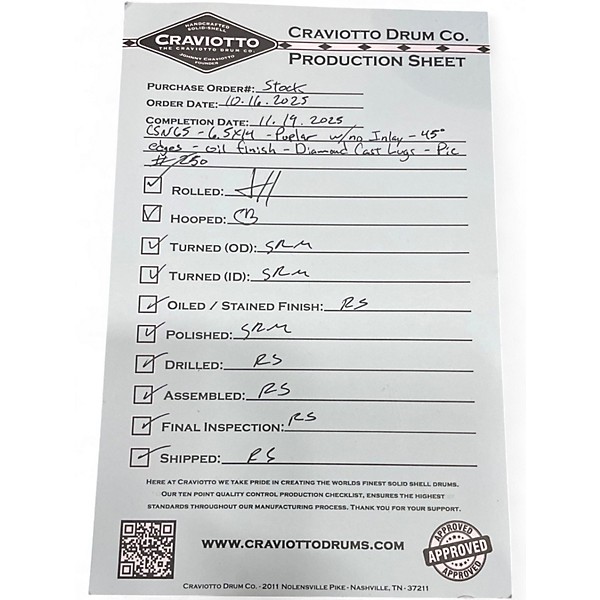 HANDCRAFTED
SOLID-SHELL
CRAVIOTTO
THE CRAVIOTTO DRUM CO.
JOHNNY CRAVIOTTO
FOUNDER
CRAVIOTTO DRUM CO.
PRODUCTION SHEET
PURCHASE ORDER#: Stock
ORDER DATE: 10.16.2025
COMPLETION DATE: 11.19.2025
CSN65 - 6.5X14 - Poplar w/no Inlay - 45°
edges - oil finish - Diamond Cast Lugs - Pic
#250
ROLLED:
HOOPED: CB
TURNED (OD): SRM
TURNED (ID): SRM
OILED / STAINED FINISH: RS
POLISHED: SRM
DRILLED: RS
ASSEMBLED: RS
FINAL INSPECTION: RS
SHIPPED: RS
HERE AT CRAVIOTTO WE TAKE PRIDE IN CREATING THE WORLDS FINEST SOLID SHELL DRUMS.
OUR TEN POINT QUALITY CONTROL PRODUCTION CHECKLIST, ENSURES THE HIGHEST
STANDARDS THROUGHOUT OUR MANUFACTURING PROCESS. THANK YOU FOR YOUR SUPPORT.
WWW.CRAVIOTTODRUMS.COM
APPROVED
APPROVED
APPROVED
CRAVIOTTO DRUM CO - 2011 NOLENSVILLE PIKE - NASHVILLE, TN - 37211